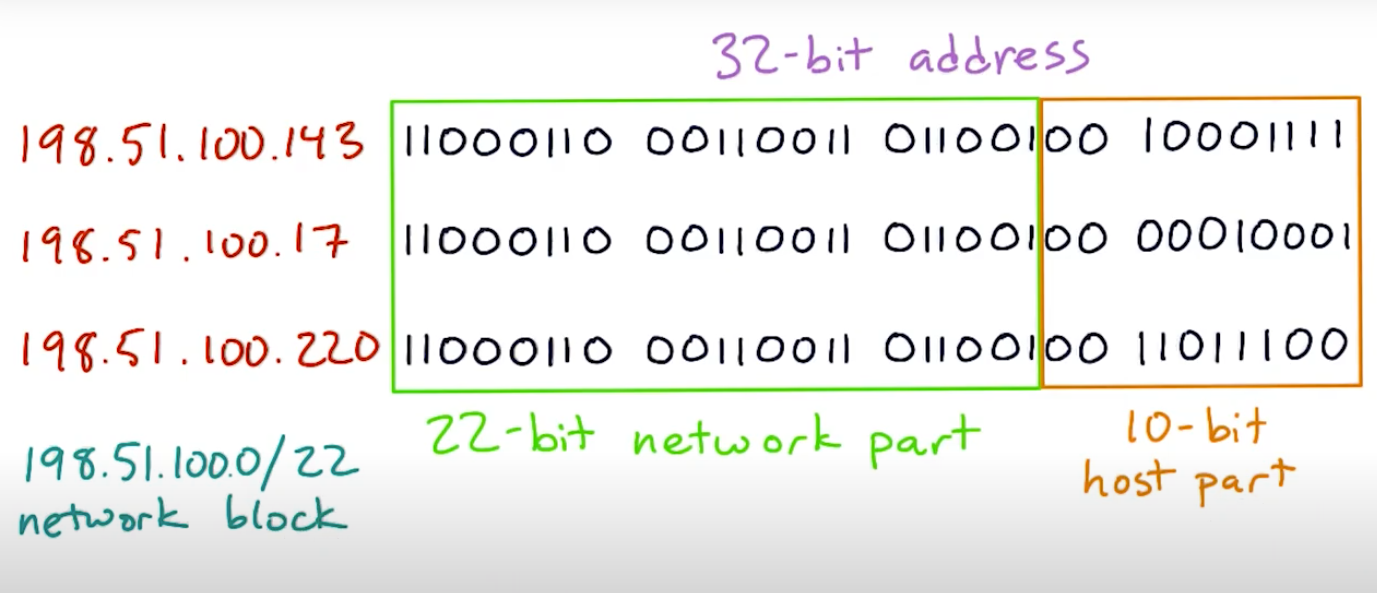 32-bit address
198.51.100.143 11000110 00110011 01100100 10001111
198.51.100.17 11000110 00110011 01100100 00010001
198.51.100.220 11000110 00110011 01100100 11011100
22-bit network part
10-bit
host part
198.51.100.0/22
network block